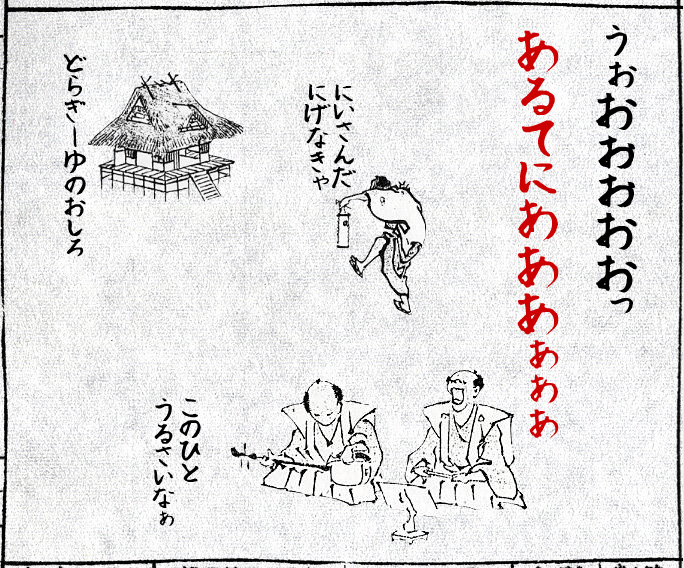 うぉおおおおおっ
あるてにあああぁぁぁ
にいさんだ
にげなきゃ
どらぎーゆのおしろ
このひと
うるさいなぁ